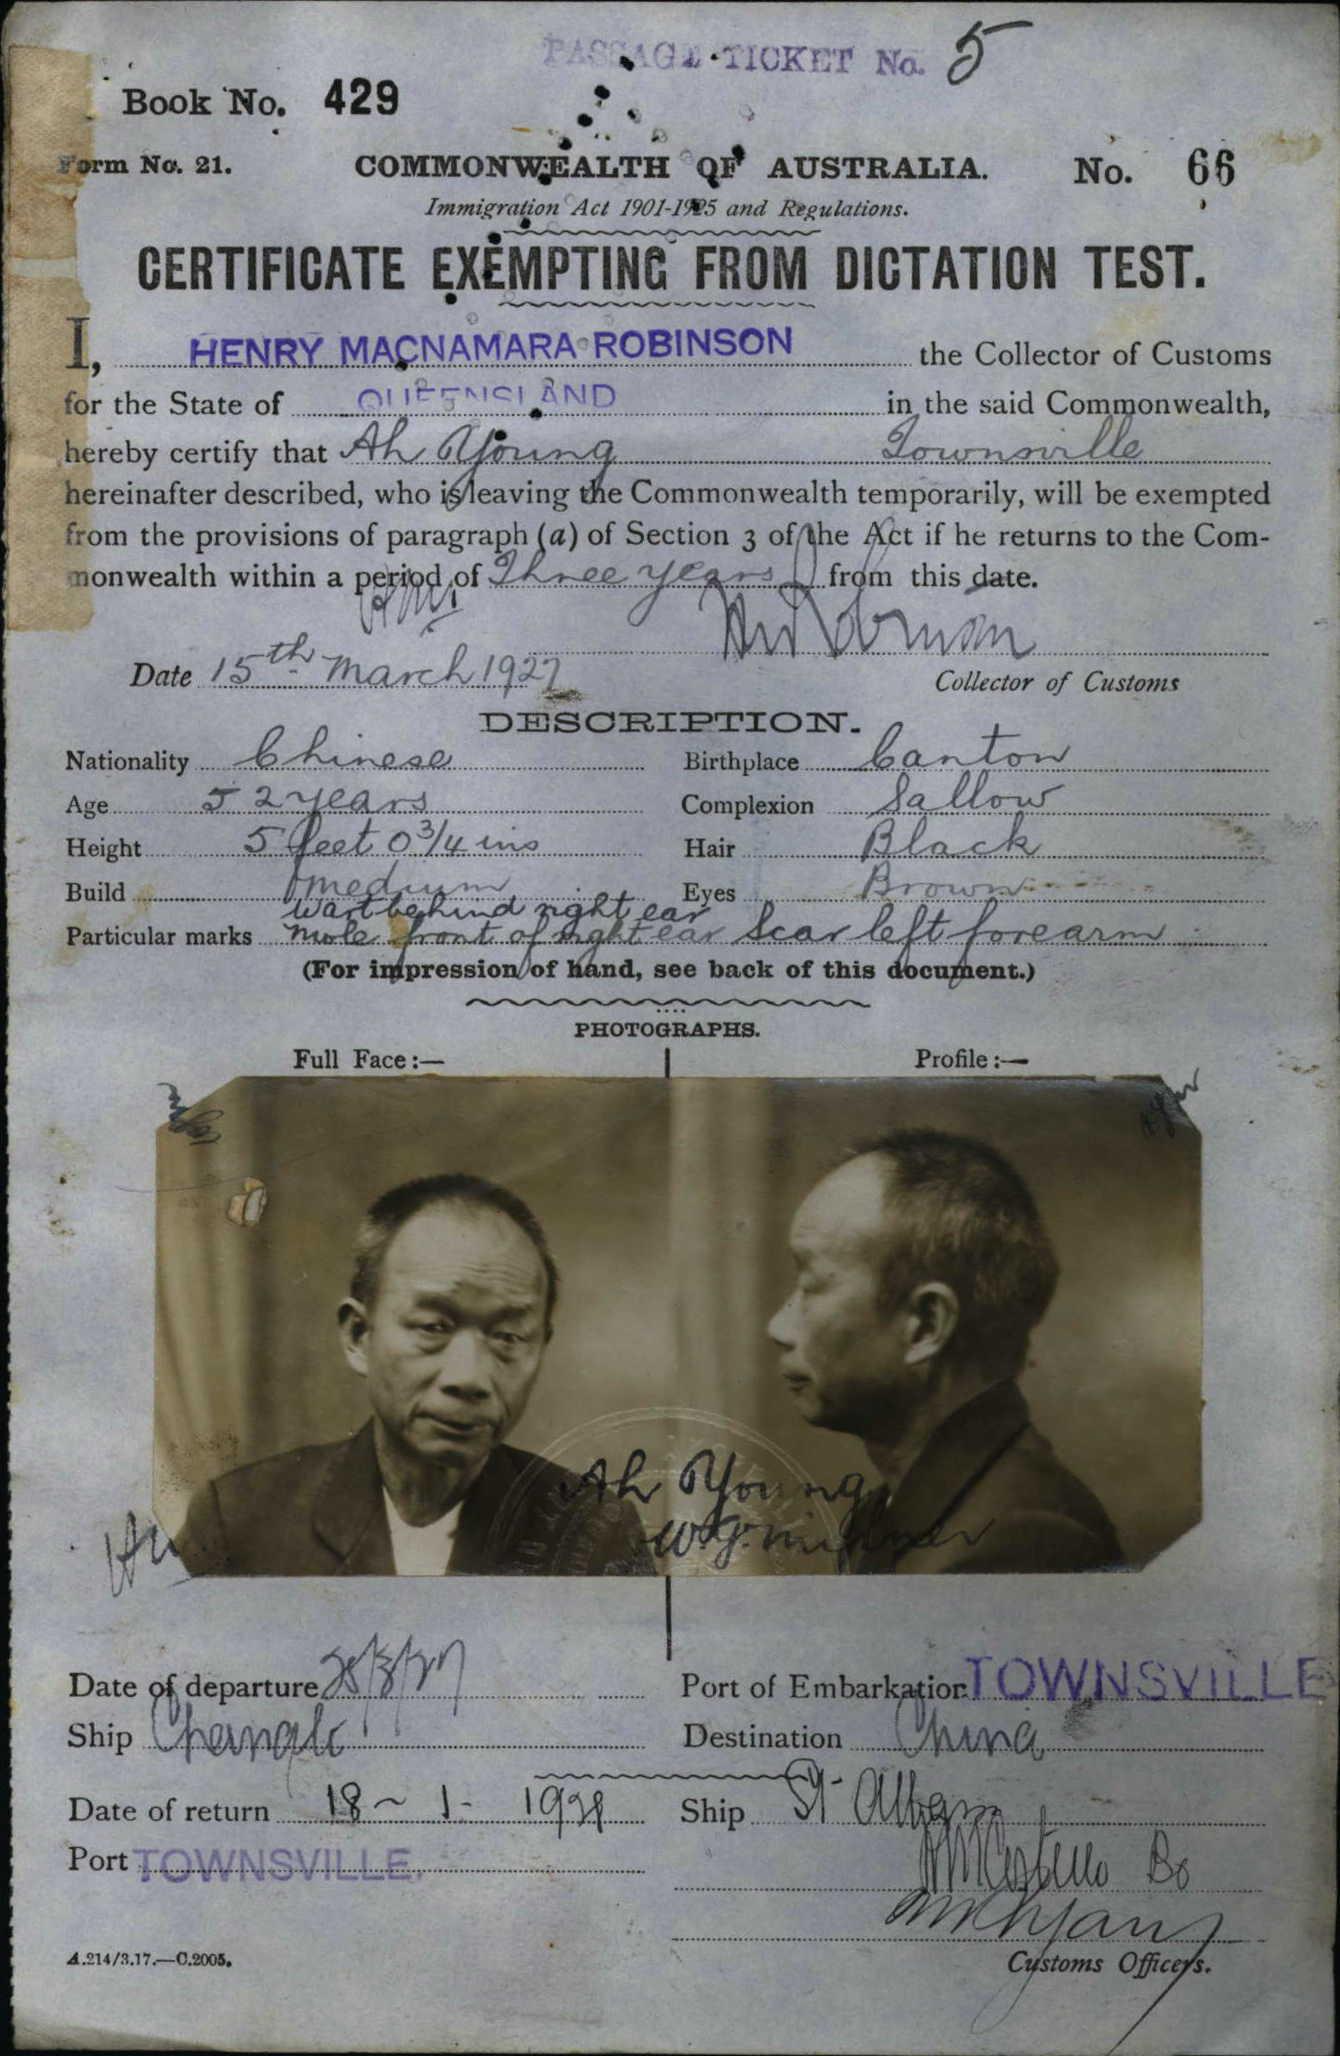 PASSAGE TICKET No. 5
Book No. 429
Form No. 21. COMMONWEALTH OF AUSTRALIA. No. 66
Immigration Act 1901-1925 and Regulations.
CERTIFICATE EXEMPTING FROM DICTATION TEST.
I, HENRY MACNAMARA ROBINSON the Collector of Customs
for the State of QUEENSLAND in the said Commonwealth,
hereby certify that Ah Young Townsville
hereinafter described, who is leaving the Commonwealth temporarily, will be exempted
from the provisions of paragraph (a) of Section 3 of the Act if he returns to the Com-
monwealth within a period of Three years from this date.
Date 15th March 1927
Collector of Customs
DESCRIPTION.
Nationality Chinese Birthplace Canton
Age 52 years Complexion Sallow
Height 5 feet 0 3/4 ins Hair Black
Build medium Eyes Brown
wart behind right ear
Particular marks mole front of right ear Scar left forearm
(For impression of hand, see back of this document.)
PHOTOGRAPHS.
Full Face:— Profile:—
Ah Young
Date of departure 28/3/27 Port of Embarkation TOWNSVILLE
Ship Destination China
Date of return 18 - 1 - Ship St Albans
Port TOWNSVILLE.
Customs Officers.
A.214/3.17.—C.2005.